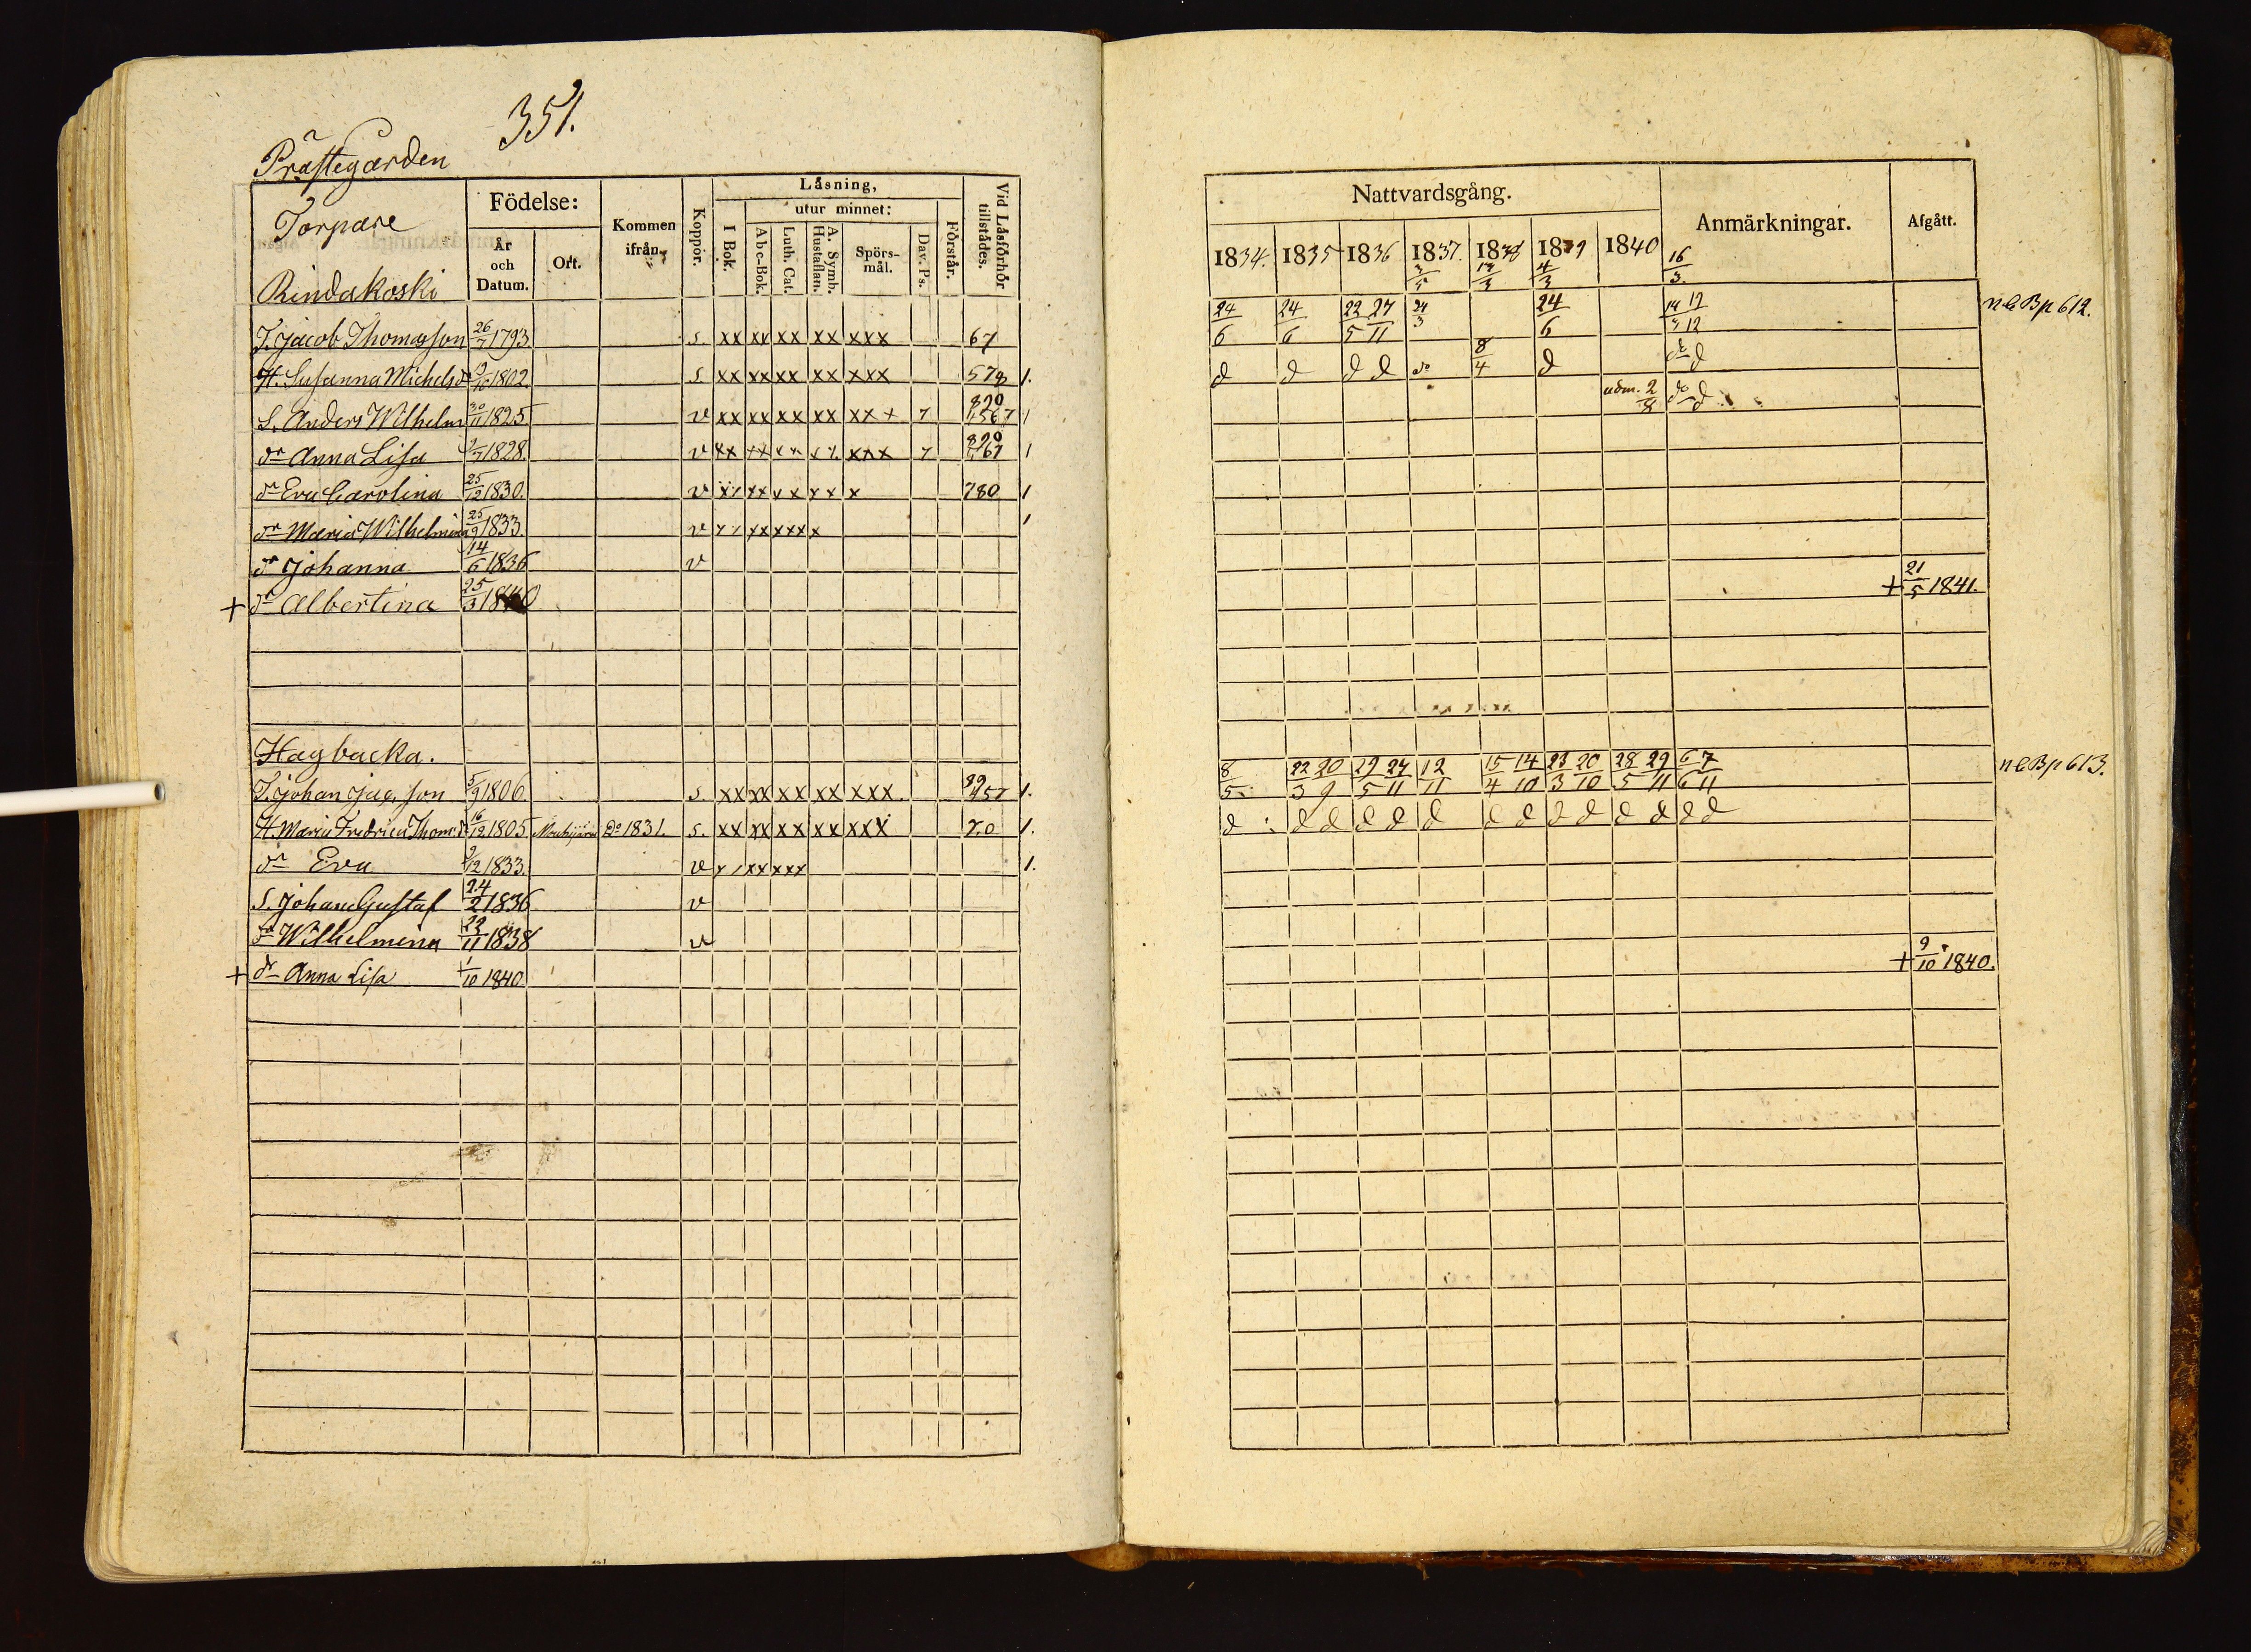 351.
Prästegården
Torpare
Rindakoski
Födelse:
År och Datum.
Ort.
Kommen ifrån.
Koppor.
Läsning,
I Bok.
utur minnet:
Abc-Bok.
Luth. Cat.
A. Symb. Hustaflan.
Spörs-mål.
Dav. Ps.
Förstår.
Vid Läsförhör tillstådes.
T. Jacob Thomasson 26/7 1793 s. xx xx xx xx xxx 67
H. Susanna Michelsdr 1802. s xx xx xx xx xxx 578 1.
S. Anders Wilhelm 30/11 1825 v xx xx xx xx xxx 7 1
dr Anna Lisa 1828. v xx xx xx xx xxx 7 1
dr Eva Carolina 25/12 1830. v xx xx xx xx x 780 1
dr Maria Wilhelmina 25/9 1833. v xx xxxxx 1
dr Johanna 14/6 1836 v
+ dr Albertina 25/3 1840
Hagbacka.
T. Johan Jac. son 5/9 1806. s. xx xx xx xx xxx 1.
H. Maria Fredrica Thom. dr 16/12 1805. Do 1831. s. xx xx xx xx xxx 70 1.
dr Eva 9/12 1833. v xx xxx 1.
S. Johan Gustaf 24/2 1836 v
dr Wilhelmina 22/11 1838 v
+ dr Anna Lisa 1/10 1840.
Nattvardsgång.
Anmärkningar.
Afgått.
1834. 1835 1836 1837. 1838 1839 1840
16/3.
24/6 24/6 22/5 27/11 24/3 24/6 n C B p 612.
d d d d do 8/4 d do d
adm. 2/8 do d
+ 21/5 1841.
8/5 22/3 20/9 29/5 27/11 12/11 15/4 14/10 23/3 20/10 28/5 29/11 6/6 7/11 n C B p 613.
d d d d d d d d d d d d d d
+ 9/10 1840.